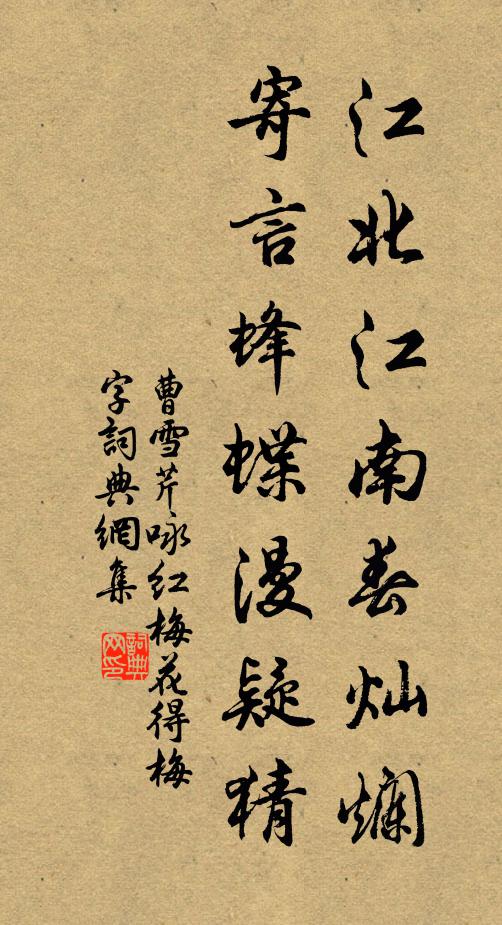 江北江南春灿爛
寄言蜂蝶漫疑猜
曹雪芹咏红梅花得梅
字詞典網集
詞典网印